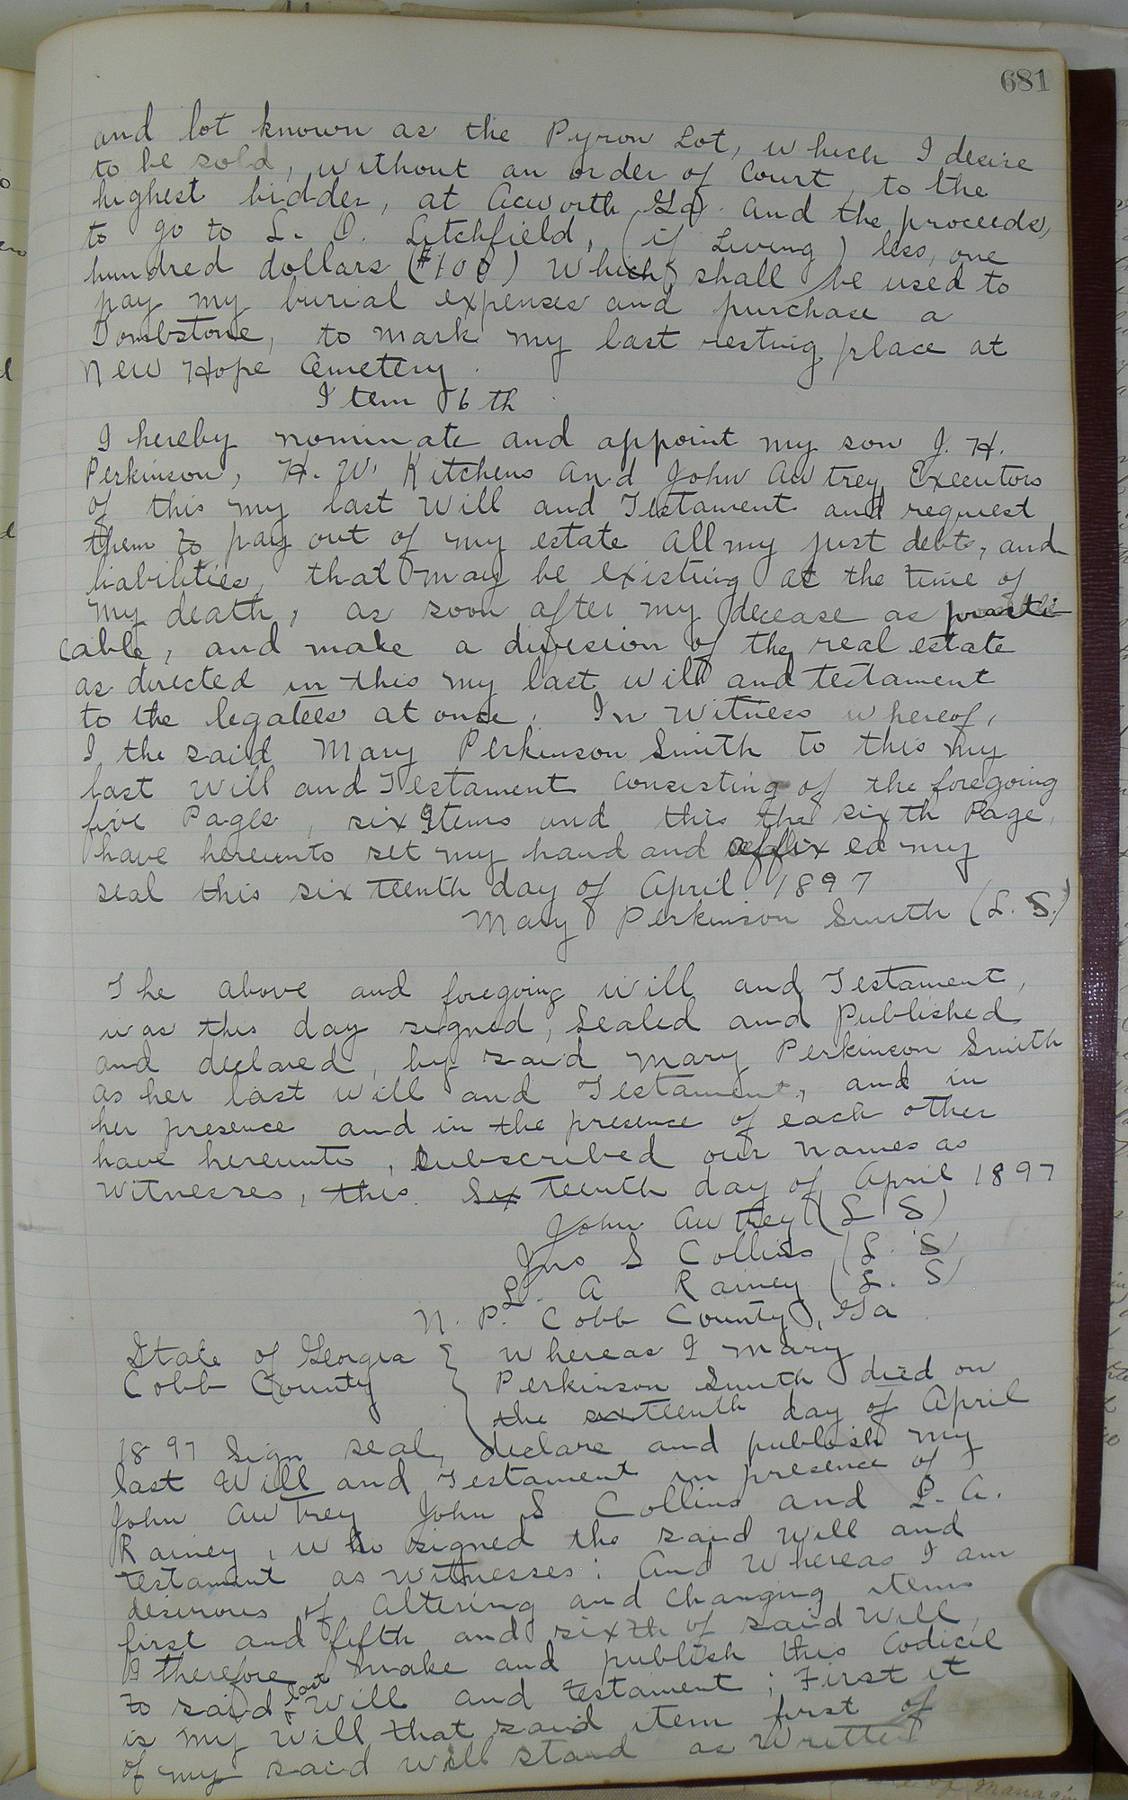 681
and lot known as the Pyron Lot, which I desire
to be sold, without an order of Court, to the
highest bidder, at Acworth Ga. and the proceeds,
to go to L. O. Litchfield, (if Living) less, one
hundred dollars ($100) Which shall be used to
pay my burial expenses and purchase a
Tombstone, to mark my last resting place at
New Hope Cemetery.
Item 6th
I hereby nominate and appoint my son J. H.
Perkinson, H. W. Kitchens and John Awtrey Executors
of this my last Will and Testament and request
them to pay out of my estate all my just debts, and
liabilities, that may be existing at the time of
my death, as soon after my decease as practi
cable, and make a division of the real estate
as directed in this my last will and testament
to the legatees at once. In Witness whereof,
I the said Mary Perkinson Smith to this my
last Will and Testament consisting of the foregoing
five Pages, six Items and this the sixth Page,
have hereunto set my hand and affixed my
seal this sixteenth day of April 1897
Mary Perkinson Smith (L. S.)
The above and foregoing will and Testament,
was this day signed, Sealed and Published
and declared, by said Mary Perkinson Smith
as her last Will and Testament, and in
her presence and in the presence of each other
have hereunto, Subscribed our names as
Witnesses, this Sixteenth day of April 1897
John Awtrey (L S)
Jno S Collins (L. S)
L. A Rainey (L. S)
N. P. Cobb County, Ga
State of Georgia } whereas I Mary
Cobb County } Perkinson Smith died on
the sixteenth day of April
1897 Sign seal, declare and publish my
last Will and Testament in presence of
John Awtrey John S Collins and L. A.
Rainey, who signed the said Will and
testament as witnesses; And Whereas I am
desirous of Altering and Changing items
first and fifth and sixth of said Will,
I therefore make and publish this Codicil
to said last Will and testament; First it
is my Will that said item first of
of my said Will stand as Written